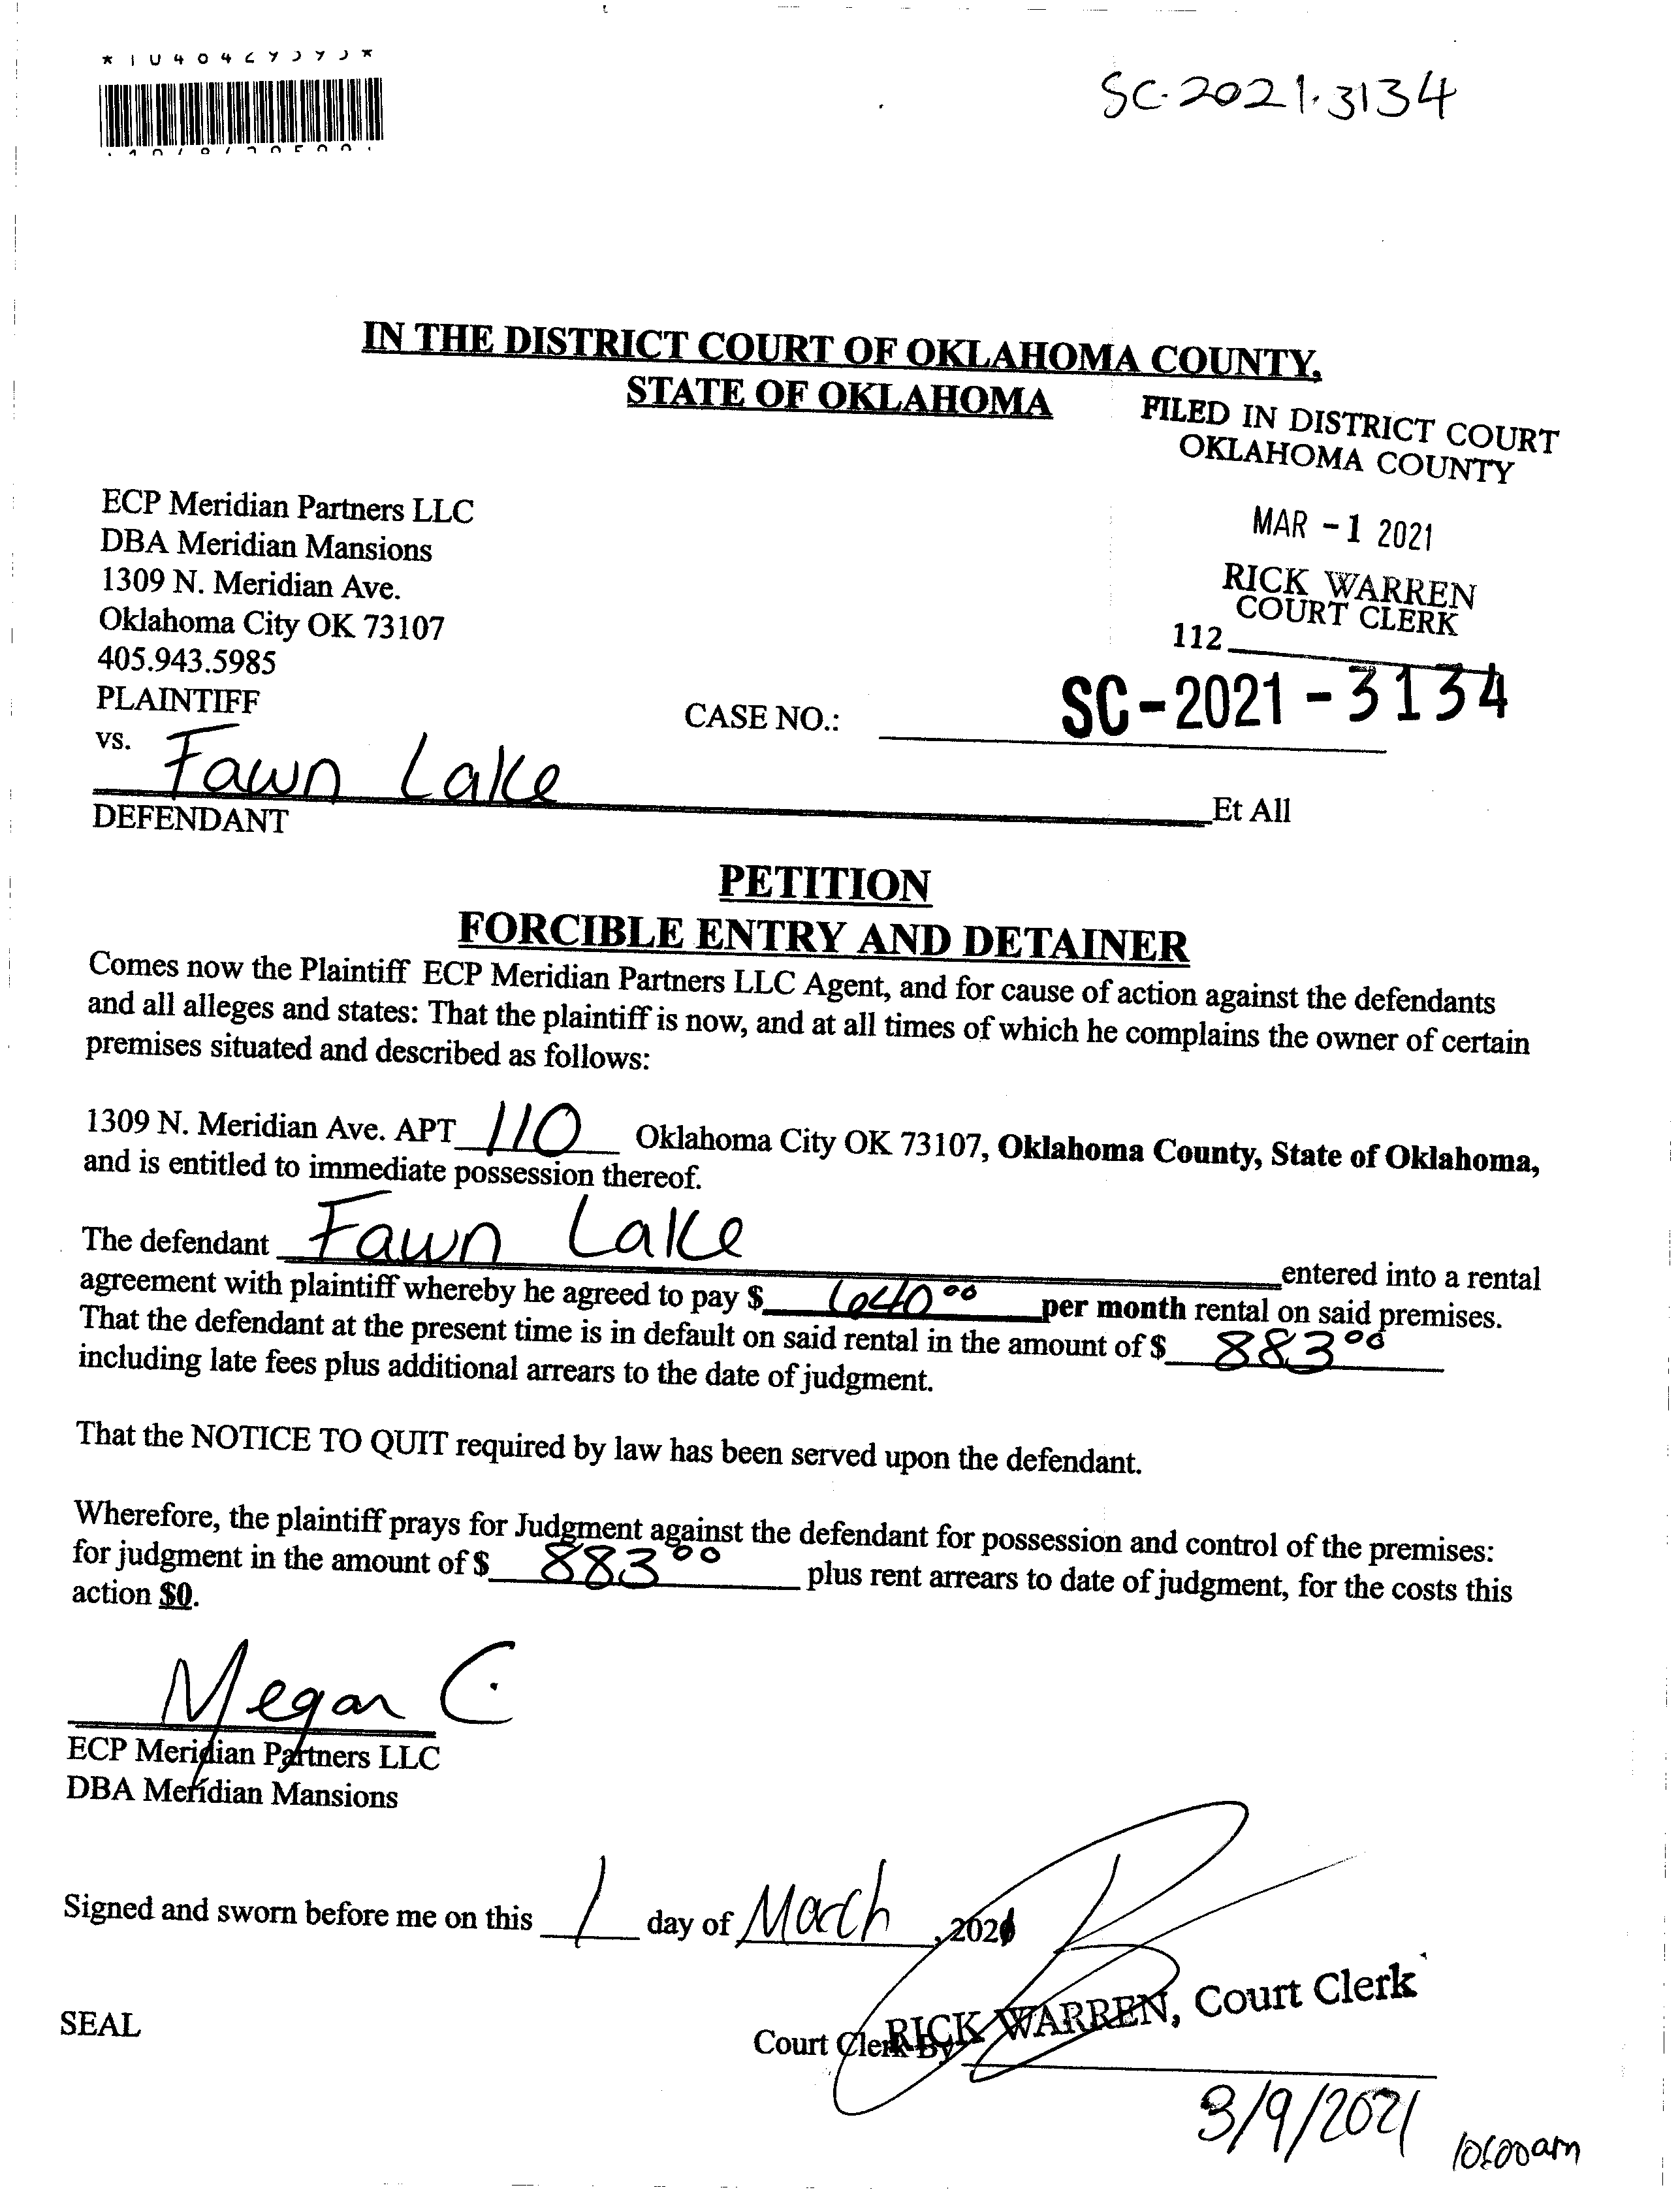 SC-2021-3134
IN THE DISTRICT COURT OF OKLAHOMA COUNTY,
STATE OF OKLAHOMA
FILED IN DISTRICT COURT
OKLAHOMA COUNTY
MAR -1 2021
RICK WARREN
COURT CLERK
112
ECP Meridian Partners LLC
DBA Meridian Mansions
1309 N. Meridian Ave.
Oklahoma City OK 73107
405.943.5985
PLAINTIFF
CASE NO.: SC-2021-3134
vs.
Fawn Lake Et All
DEFENDANT
PETITION
FORCIBLE ENTRY AND DETAINER
Comes now the Plaintiff ECP Meridian Partners LLC Agent, and for cause of action against the defendants
and all alleges and states: That the plaintiff is now, and at all times of which he complains the owner of certain
premises situated and described as follows:
1309 N. Meridian Ave. APT 110 Oklahoma City OK 73107, Oklahoma County, State of Oklahoma,
and is entitled to immediate possession thereof.
The defendant Fawn Lake entered into a rental
agreement with plaintiff whereby he agreed to pay $ 640.00 per month rental on said premises.
That the defendant at the present time is in default on said rental in the amount of $ 883.00
including late fees plus additional arrears to the date of judgment.
That the NOTICE TO QUIT required by law has been served upon the defendant.
Wherefore, the plaintiff prays for Judgment against the defendant for possession and control of the premises:
for judgment in the amount of $ 883.00 plus rent arrears to date of judgment, for the costs this
action $0.
Megan C.
ECP Meridian Partners LLC
DBA Meridian Mansions
Signed and sworn before me on this 1 day of March, 2021
RICK WARREN, Court Clerk
SEAL
Court Clerk By
3/9/2021
10:00am